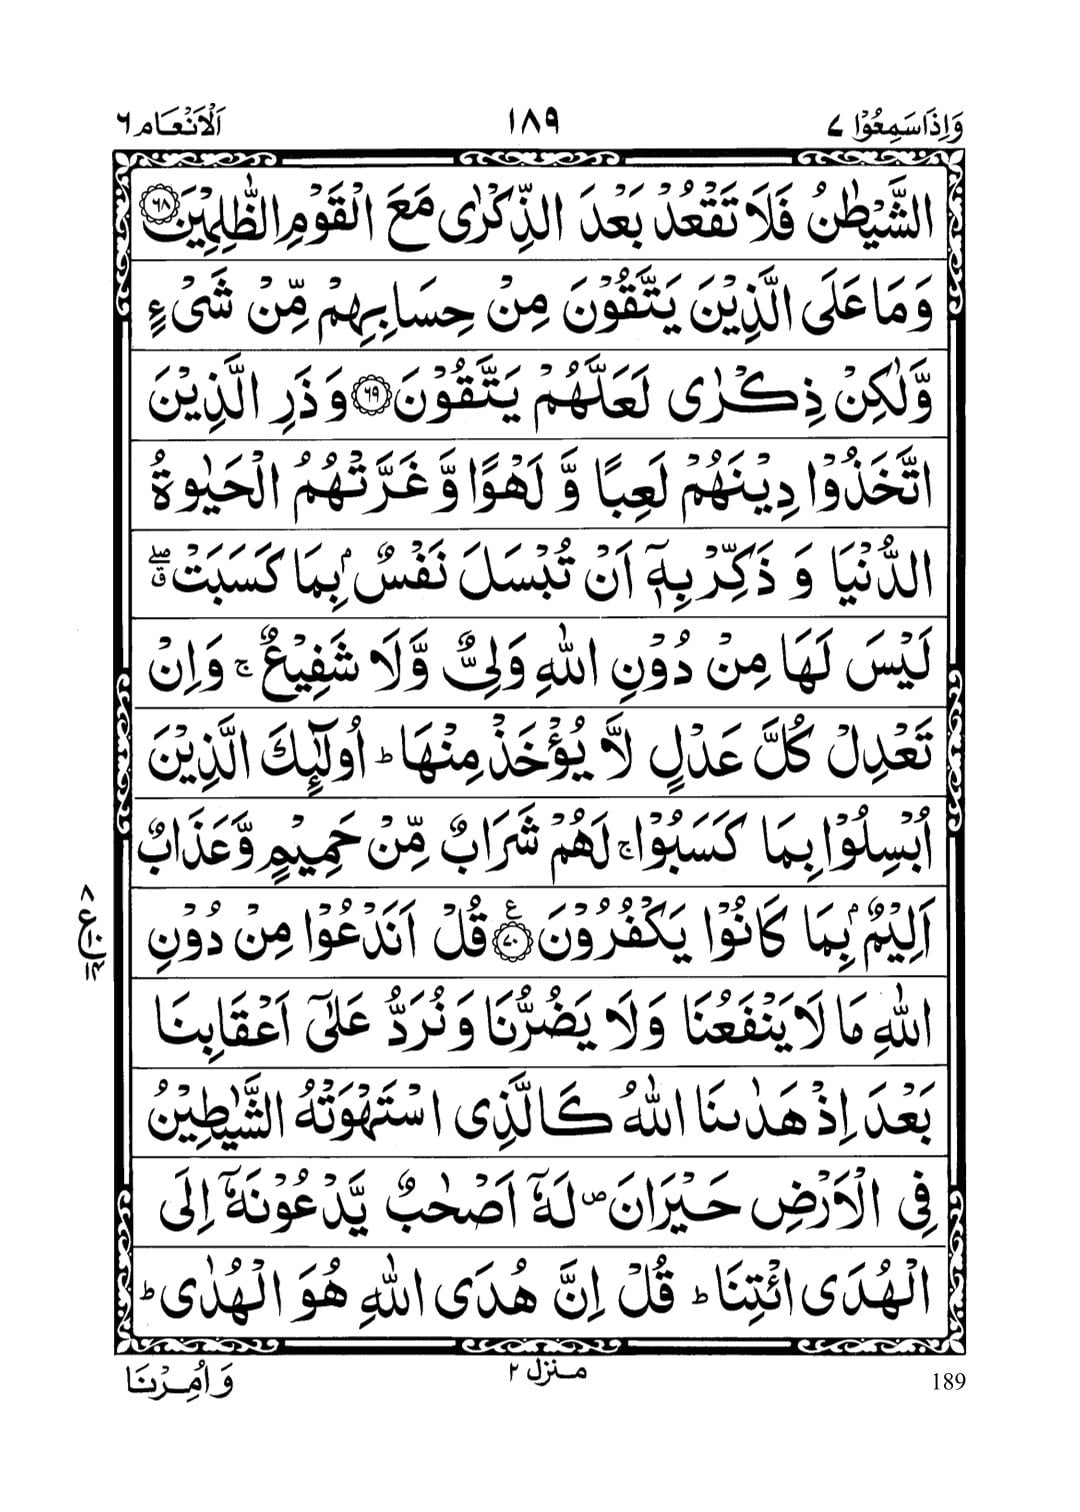 وَاِذَاسَمِعُوْا ٧
١٨٩
اَلْاَنْعَام ٦
الشَّيْطٰنُ فَلَا تَقْعُدْ بَعْدَ الذِّكْرٰى مَعَ الْقَوْمِ الظّٰلِمِيْنَ ۝٦٨
وَمَا عَلَى الَّذِيْنَ يَتَّقُوْنَ مِنْ حِسَابِهِمْ مِّنْ شَىْءٍ
وَّلٰكِنْ ذِكْرٰى لَعَلَّهُمْ يَتَّقُوْنَ ۝٦٩ وَذَرِ الَّذِيْنَ
اتَّخَذُوْا دِيْنَهُمْ لَعِبًا وَّ لَهْوًا وَّ غَرَّتْهُمُ الْحَيٰوةُ
الدُّنْيَا وَ ذَكِّرْ بِهٖٓ اَنْ تُبْسَلَ نَفْسٌۢ بِمَا كَسَبَتْ ۖق
لَيْسَ لَهَا مِنْ دُوْنِ اللّٰهِ وَلِىٌّ وَّلَا شَفِيْعٌ ۚ وَاِنْ
تَعْدِلْ كُلَّ عَدْلٍ لَّا يُؤْخَذْ مِنْهَا ؕ اُولٰٓئِكَ الَّذِيْنَ
اُبْسِلُوْا بِمَا كَسَبُوْا ۚ لَهُمْ شَرَابٌ مِّنْ حَمِيْمٍ وَّعَذَابٌ
اَلِيْمٌۢ بِمَا كَانُوْا يَكْفُرُوْنَ ۝٧٠ ع قُلْ اَنَدْعُوْا مِنْ دُوْنِ
٨
ع
١٠
١٤
اللّٰهِ مَا لَا يَنْفَعُنَا وَلَا يَضُرُّنَا وَنُرَدُّ عَلٰٓى اَعْقَابِنَا
بَعْدَ اِذْ هَدٰىنَا اللّٰهُ كَالَّذِى اسْتَهْوَتْهُ الشَّيٰطِيْنُ
فِى الْاَرْضِ حَيْرَانَ ص لَهٗٓ اَصْحٰبٌ يَّدْعُوْنَهٗٓ اِلَى
الْهُدَى ائْتِنَا ؕ قُلْ اِنَّ هُدَى اللّٰهِ هُوَ الْهُدٰى ؕ
وَاُمِرْنَا
منزل ٢
189